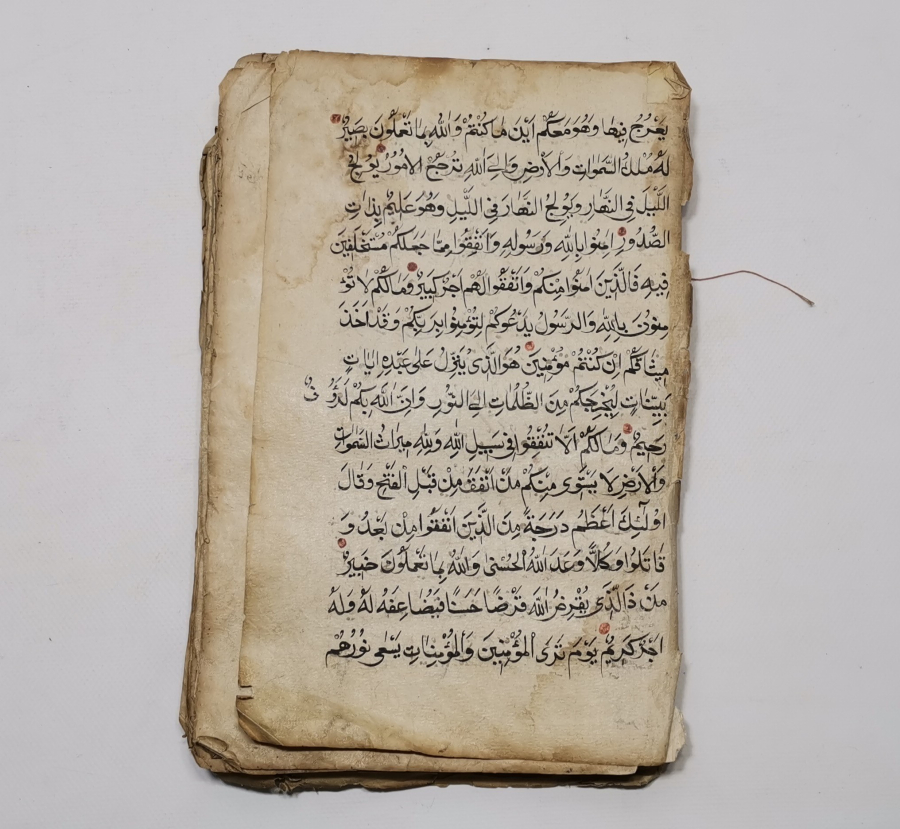 يَعْرُجُ فِيهَا وَهُوَ مَعَكُمْ اَيْنَ مَا كُنْتُمْ وَاللّٰهُ بِمَا تَعْمَلُونَ بَصِيرٌ
لَهُ مُلْكُ السَّمٰوَاتِ وَالْاَرْضِ وَاِلَى اللّٰهِ تُرْجَعُ الْاُمُورُ يُولِجُ
اللَّيْلَ فِي النَّهَارِ وَيُولِجُ النَّهَارَ فِي اللَّيْلِ وَهُوَ عَلِيمٌ بِذَاتِ
الصُّدُورِ اٰمِنُوا بِاللّٰهِ وَرَسُولِهِ وَاَنْفِقُوا مِمَّا جَعَلَكُمْ مُسْتَخْلَفِينَ
فِيهِ فَالَّذِينَ اٰمَنُوا مِنْكُمْ وَاَنْفَقُوا لَهُمْ اَجْرٌ كَبِيرٌ وَمَا لَكُمْ لَا تُؤْ
مِنُونَ بِاللّٰهِ وَالرَّسُولُ يَدْعُوكُمْ لِتُؤْمِنُوا بِرَبِّكُمْ وَقَدْ اَخَذَ
مِيثَاقَكُمْ اِنْ كُنْتُمْ مُؤْمِنِينَ هُوَ الَّذِي يُنَزِّلُ عَلٰى عَبْدِهِ اٰيَاتٍ
بَيِّنَاتٍ لِيُخْرِجَكُمْ مِنَ الظُّلُمَاتِ اِلَى النُّورِ وَاِنَّ اللّٰهَ بِكُمْ لَرَؤُفٌ
رَحِيمٌ وَمَا لَكُمْ اَلَّا تُنْفِقُوا فِي سَبِيلِ اللّٰهِ وَلِلّٰهِ مِيرَاثُ السَّمٰوَاتِ
وَالْاَرْضِ لَا يَسْتَوِي مِنْكُمْ مَنْ اَنْفَقَ مِنْ قَبْلِ الْفَتْحِ وَقَاتَلَ
اُولٰئِكَ اَعْظَمُ دَرَجَةً مِنَ الَّذِينَ اَنْفَقُوا مِنْ بَعْدُ وَ
قَاتَلُوا وَكُلًّا وَعَدَ اللّٰهُ الْحُسْنٰى وَاللّٰهُ بِمَا تَعْمَلُونَ خَبِيرٌ
مَنْ ذَا الَّذِي يُقْرِضُ اللّٰهَ قَرْضًا حَسَنًا فَيُضَاعِفَهُ لَهُ وَلَهُ
اَجْرٌ كَرِيمٌ يَوْمَ تَرَى الْمُؤْمِنِينَ وَالْمُؤْمِنَاتِ يَسْعٰى نُورُهُمْ